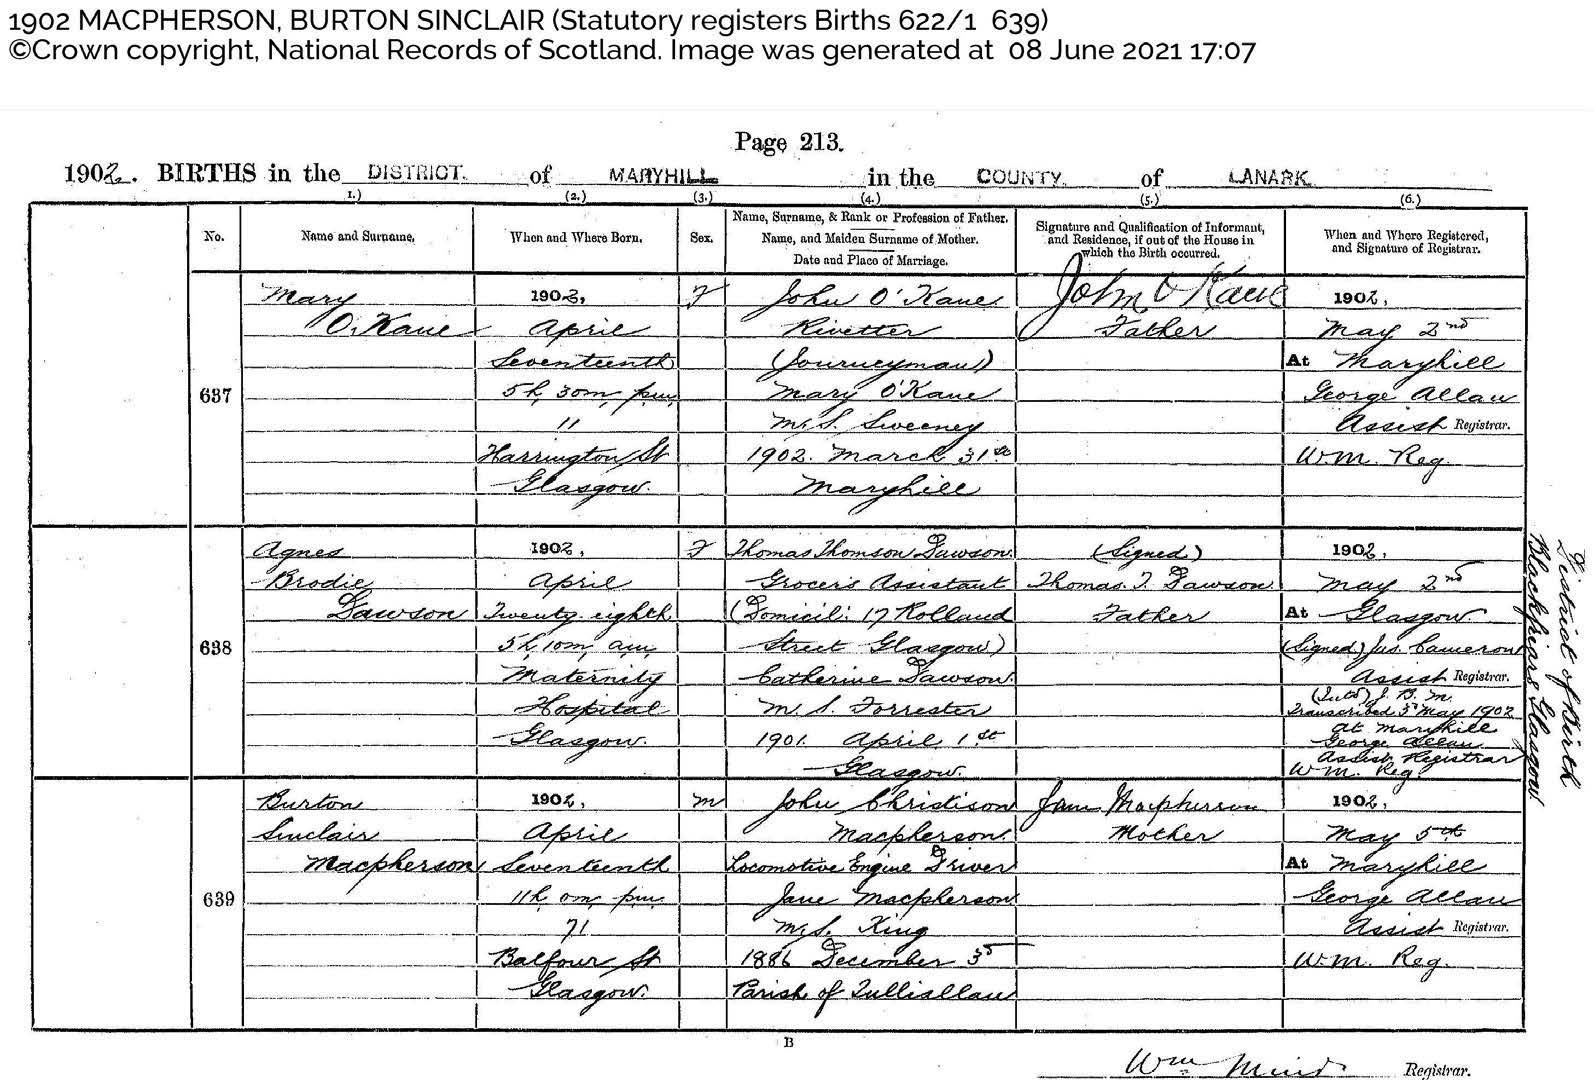 1902 MACPHERSON, BURTON SINCLAIR (Statutory registers Births 622/1 639)
©Crown copyright, National Records of Scotland. Image was generated at 08 June 2021 17:07
Page 213.
1902. BIRTHS in the DISTRICT of MARYHILL in the COUNTY of LANARK
1.) (2.) (3.) (4.) (5.) (6.)
No.
Name and Surname.
When and Where Born.
Sex.
Name, Surname, & Rank or Profession of Father.
Name, and Maiden Surname of Mother.
Date and Place of Marriage.
Signature and Qualification of Informant,
and Residence, if out of the House in
which the Birth occurred.
When and Where Registered,
and Signature of Registrar.
637
Mary
O'Kane
1902,
April
Seventeenth
5h, 30m, p.m.
11
Harrington St
Glasgow.
F
John O'Kane
Rivetter
(Journeyman)
Mary O'Kane
M.S. Sweeney
1902. March 31st
Maryhill
John O'Kane
Father
1902,
May 2nd
At Maryhill
George Allan
Assist Registrar.
W.M. Reg.
638
Agnes
Brodie
Dawson
1902,
April
Twenty eighth
5h, 10m, a.m.
Maternity
Hospital
Glasgow.
F
Thomas Thomson Dawson
Grocer's Assistant
(Domicil: 17 Rolland
Street Glasgow)
Catherine Dawson
M.S. Forrester
1901. April 1st
Glasgow.
(Signed)
Thomas T. Dawson
Father
1902,
May 2nd
At Glasgow.
(Signed) Jas. Cameron
Assist Registrar.
(Intd) J. B. M.
Transcribed 3d May 1902
at Maryhill
George Allan
Assist Registrar
W.M. Reg.
District of Birth
Blackfriars Glasgow.
639
Burton
Sinclair
Macpherson
1902,
April
Seventeenth
11h, 0m, p.m.
71
Balfour St
Glasgow.
M
John Christison
Macpherson.
Locomotive Engine Driver
Jane Macpherson
M.S. King
1886 December 3d
Parish of Tulliallan
Jane Macpherson
Mother
1902,
May 5th
At Maryhill
George Allan
Assist Registrar.
W.M. Reg.
B
Wm Registrar.